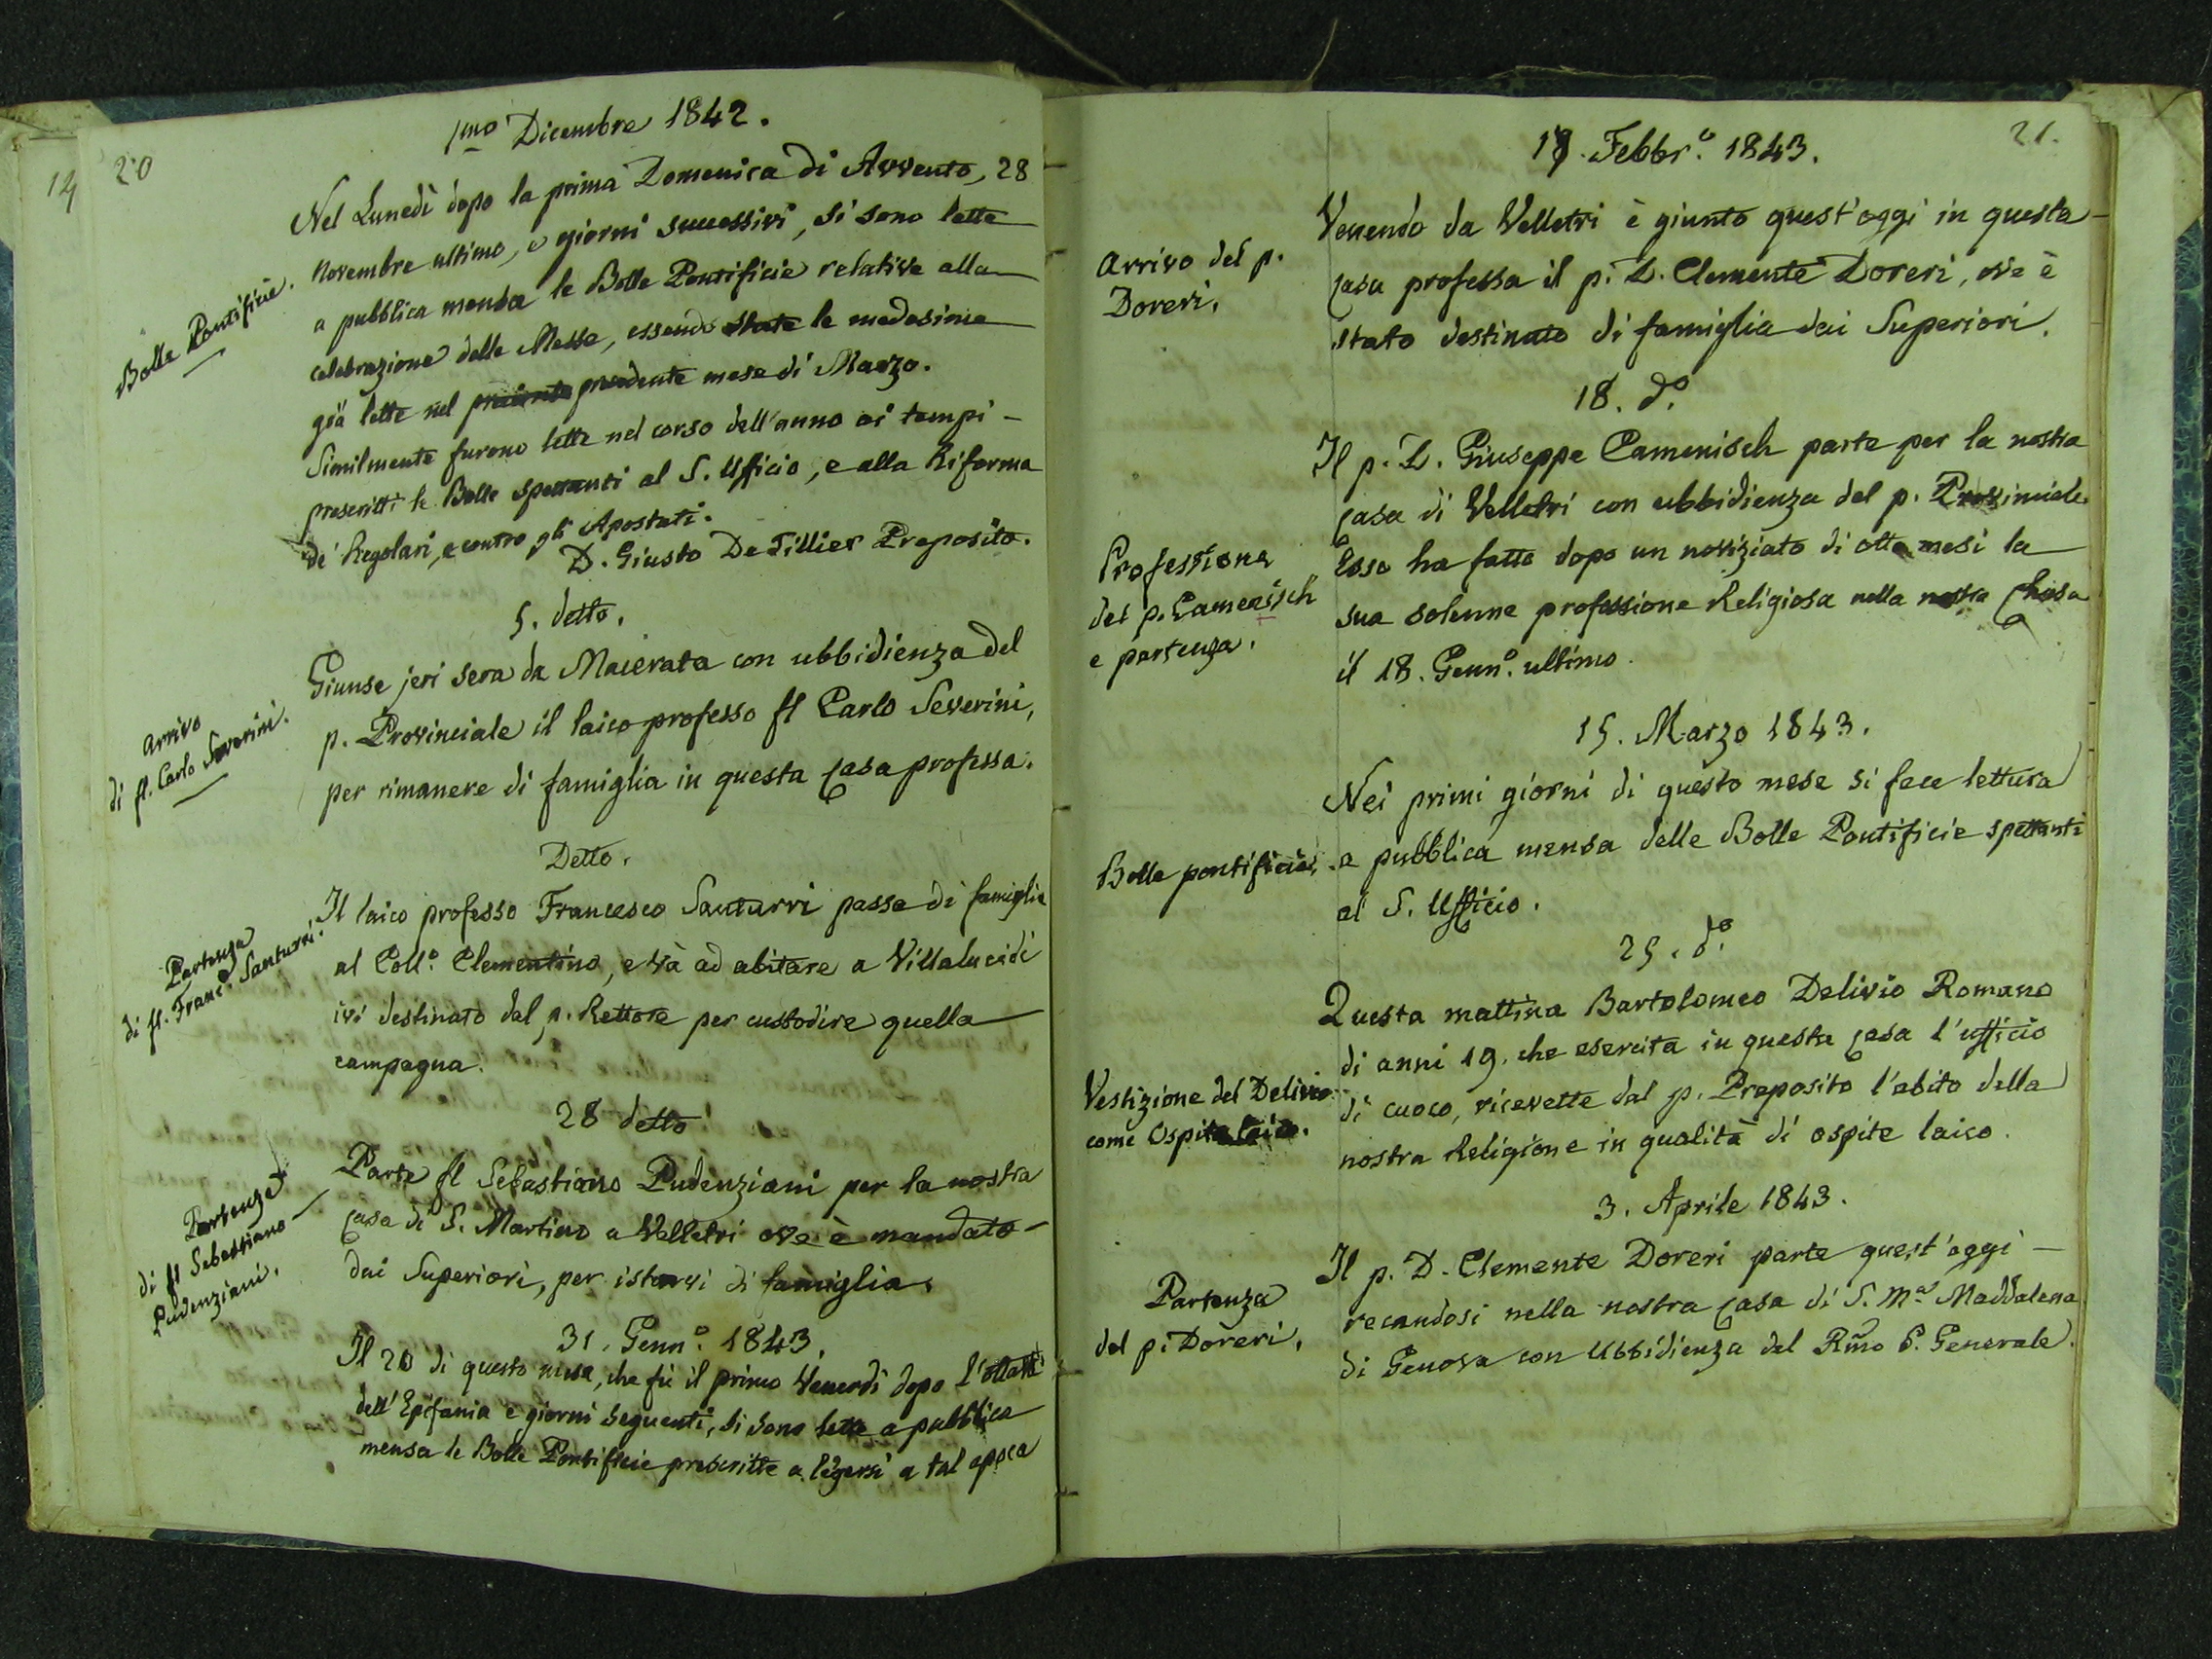 19
20
1mo Dicembre 1842.
Bolle Pontificie.
Nel Lunedì dopo la prima Domenica di Avvento, 28
novembre ultimo, e giorni successivi, si sono lette
a pubblica mensa le Bolle Pontificie relative alla
celebrazione delle Messe, essendo state le medesime
già lette nel precedente mese di Marzo.
Similmente furono lette nel corso dell'anno ai tempi -
prescritti le Bolle spettanti al S. Ufficio, e alla Riforma
de' Regolari, e contro gli Apostati.
D. Giusto De Tillier Preposito.
5. detto.
arrivo
di fl. Carlo Severini.
Giunse jeri sera da Macerata con ubbidienza del
p. Provinciale il laico professo fl Carlo Severini,
per rimanere di famiglia in questa Casa professa.
Detto.
Partenza
di fl. Franc.o Santurri.
Il laico professo Francesco Santurri passa di famiglia
al Coll.o Clementino, e và ad abitare a Villalucidi
ivi destinato dal p. Rettore per custodire quella
campagna.
28 detto
Partenza
di fl Sebastiano
Pudenziani.
Parte fl Sebastiano Pudenziani per la nostra
Casa di S. Martino a Velletri ove è mandato -
dai Superiori, per istarvi di famiglia.
31. Genn.o 1843.
Il 20 di questo mese, che fù il primo Venerdì dopo l'ottava
dell'Epifania e giorni seguenti, si sono lette a pubblica
mensa le Bolle Pontificie prescritte a legersi a tal epoca
21.
17. Febbr.o 1843.
arrivo del p.
Doreri.
Venendo da Velletri è giunto quest'oggi in questa -
Casa professa il p. D. Clemente Doreri, ove è
stato destinato di famiglia dai Superiori.
18. d.o
Professione
del p. Camenisch
e partenza.
Il p. D. Giuseppe Camenisch parte per la nostra
Casa di Velletri con ubbidienza del p. Provinciale.
Esso ha fatto dopo un noviziato di otto mesi la
sua solenne professione Religiosa nella nostra Chiesa
il 18. Genn.o ultimo.
15. Marzo 1843.
Bolle pontificie.
Nei primi giorni di questo mese si fece lettura
a pubblica mensa delle Bolle Pontificie spettanti
al S. Ufficio.
25. d.o
Vestizione del Delivio
come Ospite laico.
Questa mattina Bartolomeo Delivio Romano
di anni 19. che esercita in questa Casa l'ufficio
di cuoco, ricevette dal p. Preposito l'abito della
nostra Religione in qualità di ospite laico.
3. Aprile 1843.
Partenza
del p. Doreri.
Il p. D. Clemente Doreri parte quest'oggi -
recandosi nella nostra Casa di S. M.a Maddalena
di Genova con Ubbidienza del Rmo P. Generale.